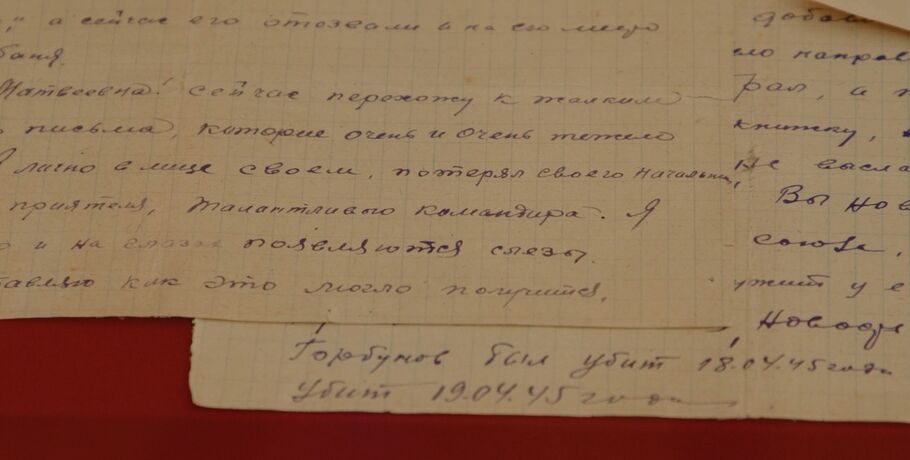 ", а сейчас его отозвали и на его место
баня.
Матвеевна! сейчас перехожу к жалким
письма, которые очень и очень тяжело
Я лично в лице своем, потерял своего начальни
приятеля, талантливого командира. Я
о и на глазах появляются слезы.
тавляю как это могло получится,
Горбунов был убит 18.04.45 года
убит 19.04.45 года
добав
ело направ
рал, а п
книжку,
не высла
Вы нов
союзе,
ужит у е
Новоде